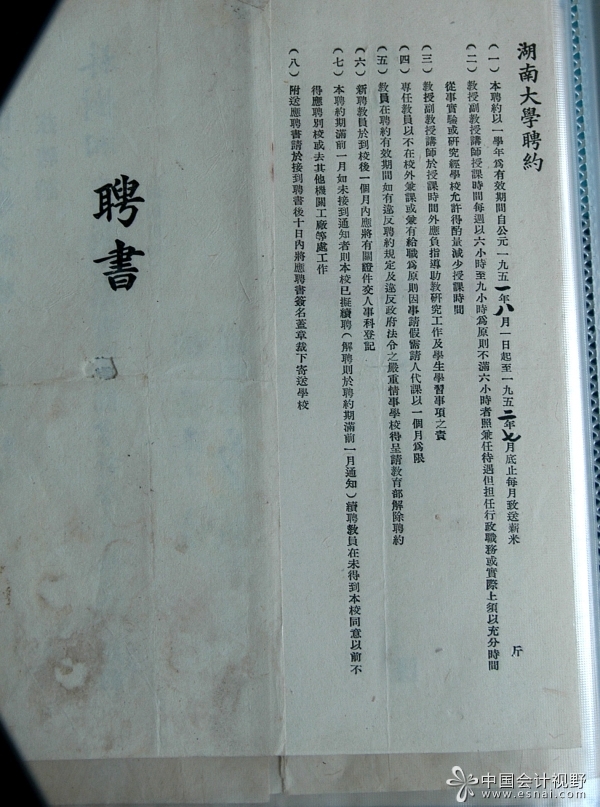 湖南大學聘約
(一)本聘約以一學年爲有效期間自公元一九五一年八月一日起至一九五二年七月底止每月致送薪米　斤
(二)教授副教授講師授課時間每週以六小時至九小時爲原則不滿六小時者照兼任待遇但担任行政職務或實際上須以充分時間
從事實驗或研究經學校允許得酌量減少授課時間
(三)教授副教授講師於授課時間外應負指導助教研究工作及學生學習事項之責
(四)專任教員以不在校外兼課或兼有給職爲原則因事請假需請人代課以一個月爲限
(五)教員在聘約有效期間如有違反聘約規定及違反政府法令之嚴重情事學校得呈請教育部解除聘約
(六)新聘教員於到校後一個月內應將有關證件交人事科登記
(七)本聘約期滿前一月如未接到通知者則本校已擬續聘(解聘則於聘約期滿前一月通知)續聘教員在未得到本校同意以前不
得應聘別校或去其他機關工廠等處工作
(八)附送應聘書請於接到聘書後十日內將應聘書簽名蓋章裁下寄送學校
聘書
中国会计视野
www.esnai.com